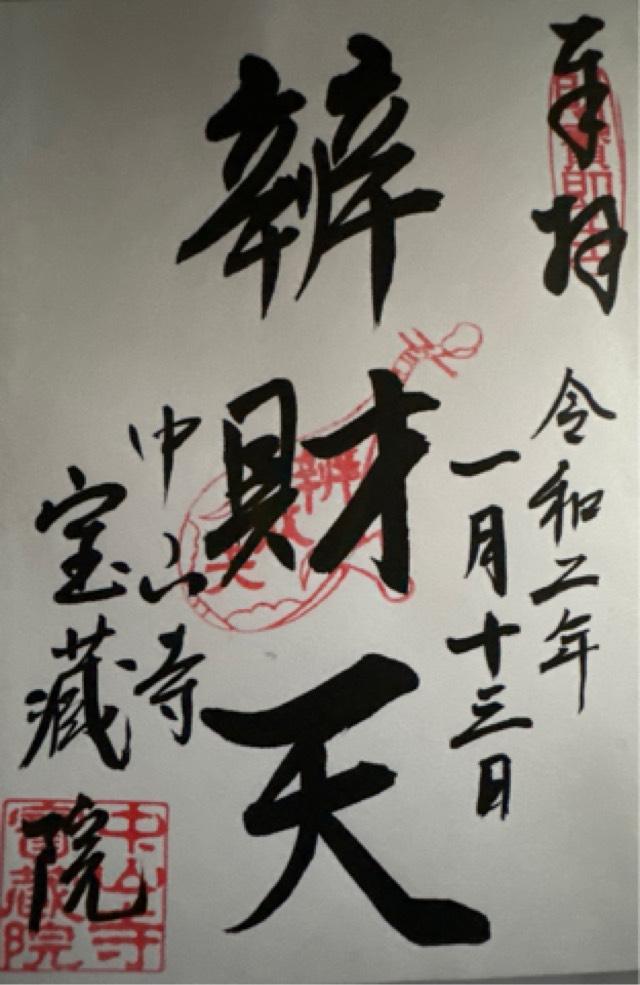 奉拝
令和二年
一月十三日
辨財天
中山寺
宝蔵院
中山寺
寳蔵院